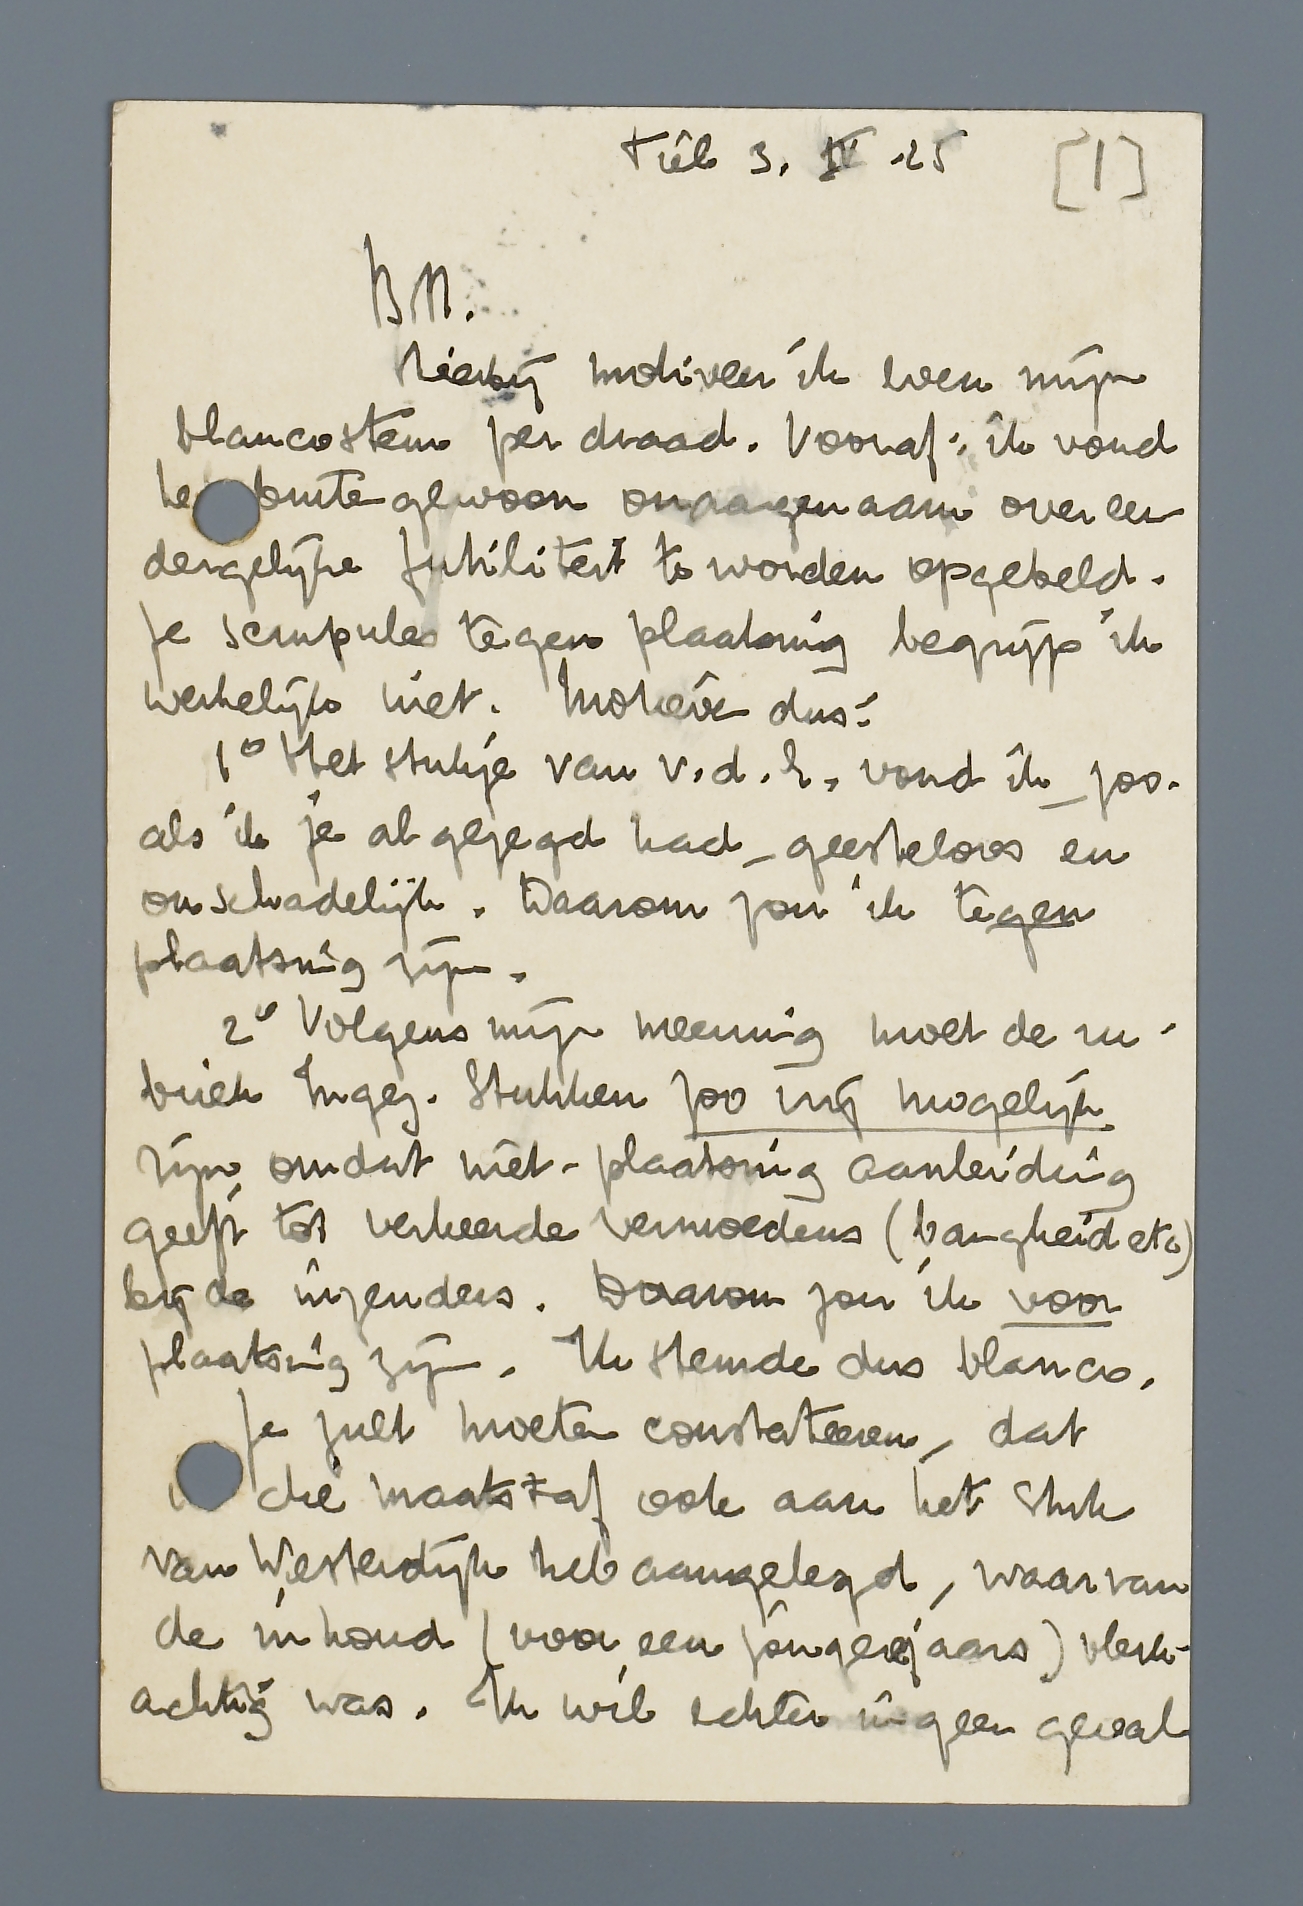 Tiel 3. IV .25 [1]
B M.
Hierbij motiveer ik even mijn
blancostem per draad. Vooraf: ik vond
he buitengewoon onaangenaam over een
dergelijke futiliteit te worden opgebeld.
Je scrupules tegen plaatsing begrijp ik
werkelijk niet. Motieve dus:
1º Het stukje van v.d. E. vond ik _ zoo-
als ik je al gezegd had _ geesteloos en
onschadelijk. Daarom zou ik tegen
plaatsing zijn.
2º Volgens mijn meening moet de ru-
briek Ingez. Stukken zoo vrij mogelijk
zijn, omdat niet-plaatsing aanleiding
geeft tot verkeerde vermoedens (bangheid etc)
bij de inzenders. Daarom zou ik voor
plaatsing zijn. Ik stemde dus blanco.
Je zult moeten constateeren, dat
die maatstaf ook aan het stuk
van Westerdijk heb aangelegd, waarvan
de inhoud (voor een jongerejaars) vlerk-
achtig was. Ik wil echter in geen geval